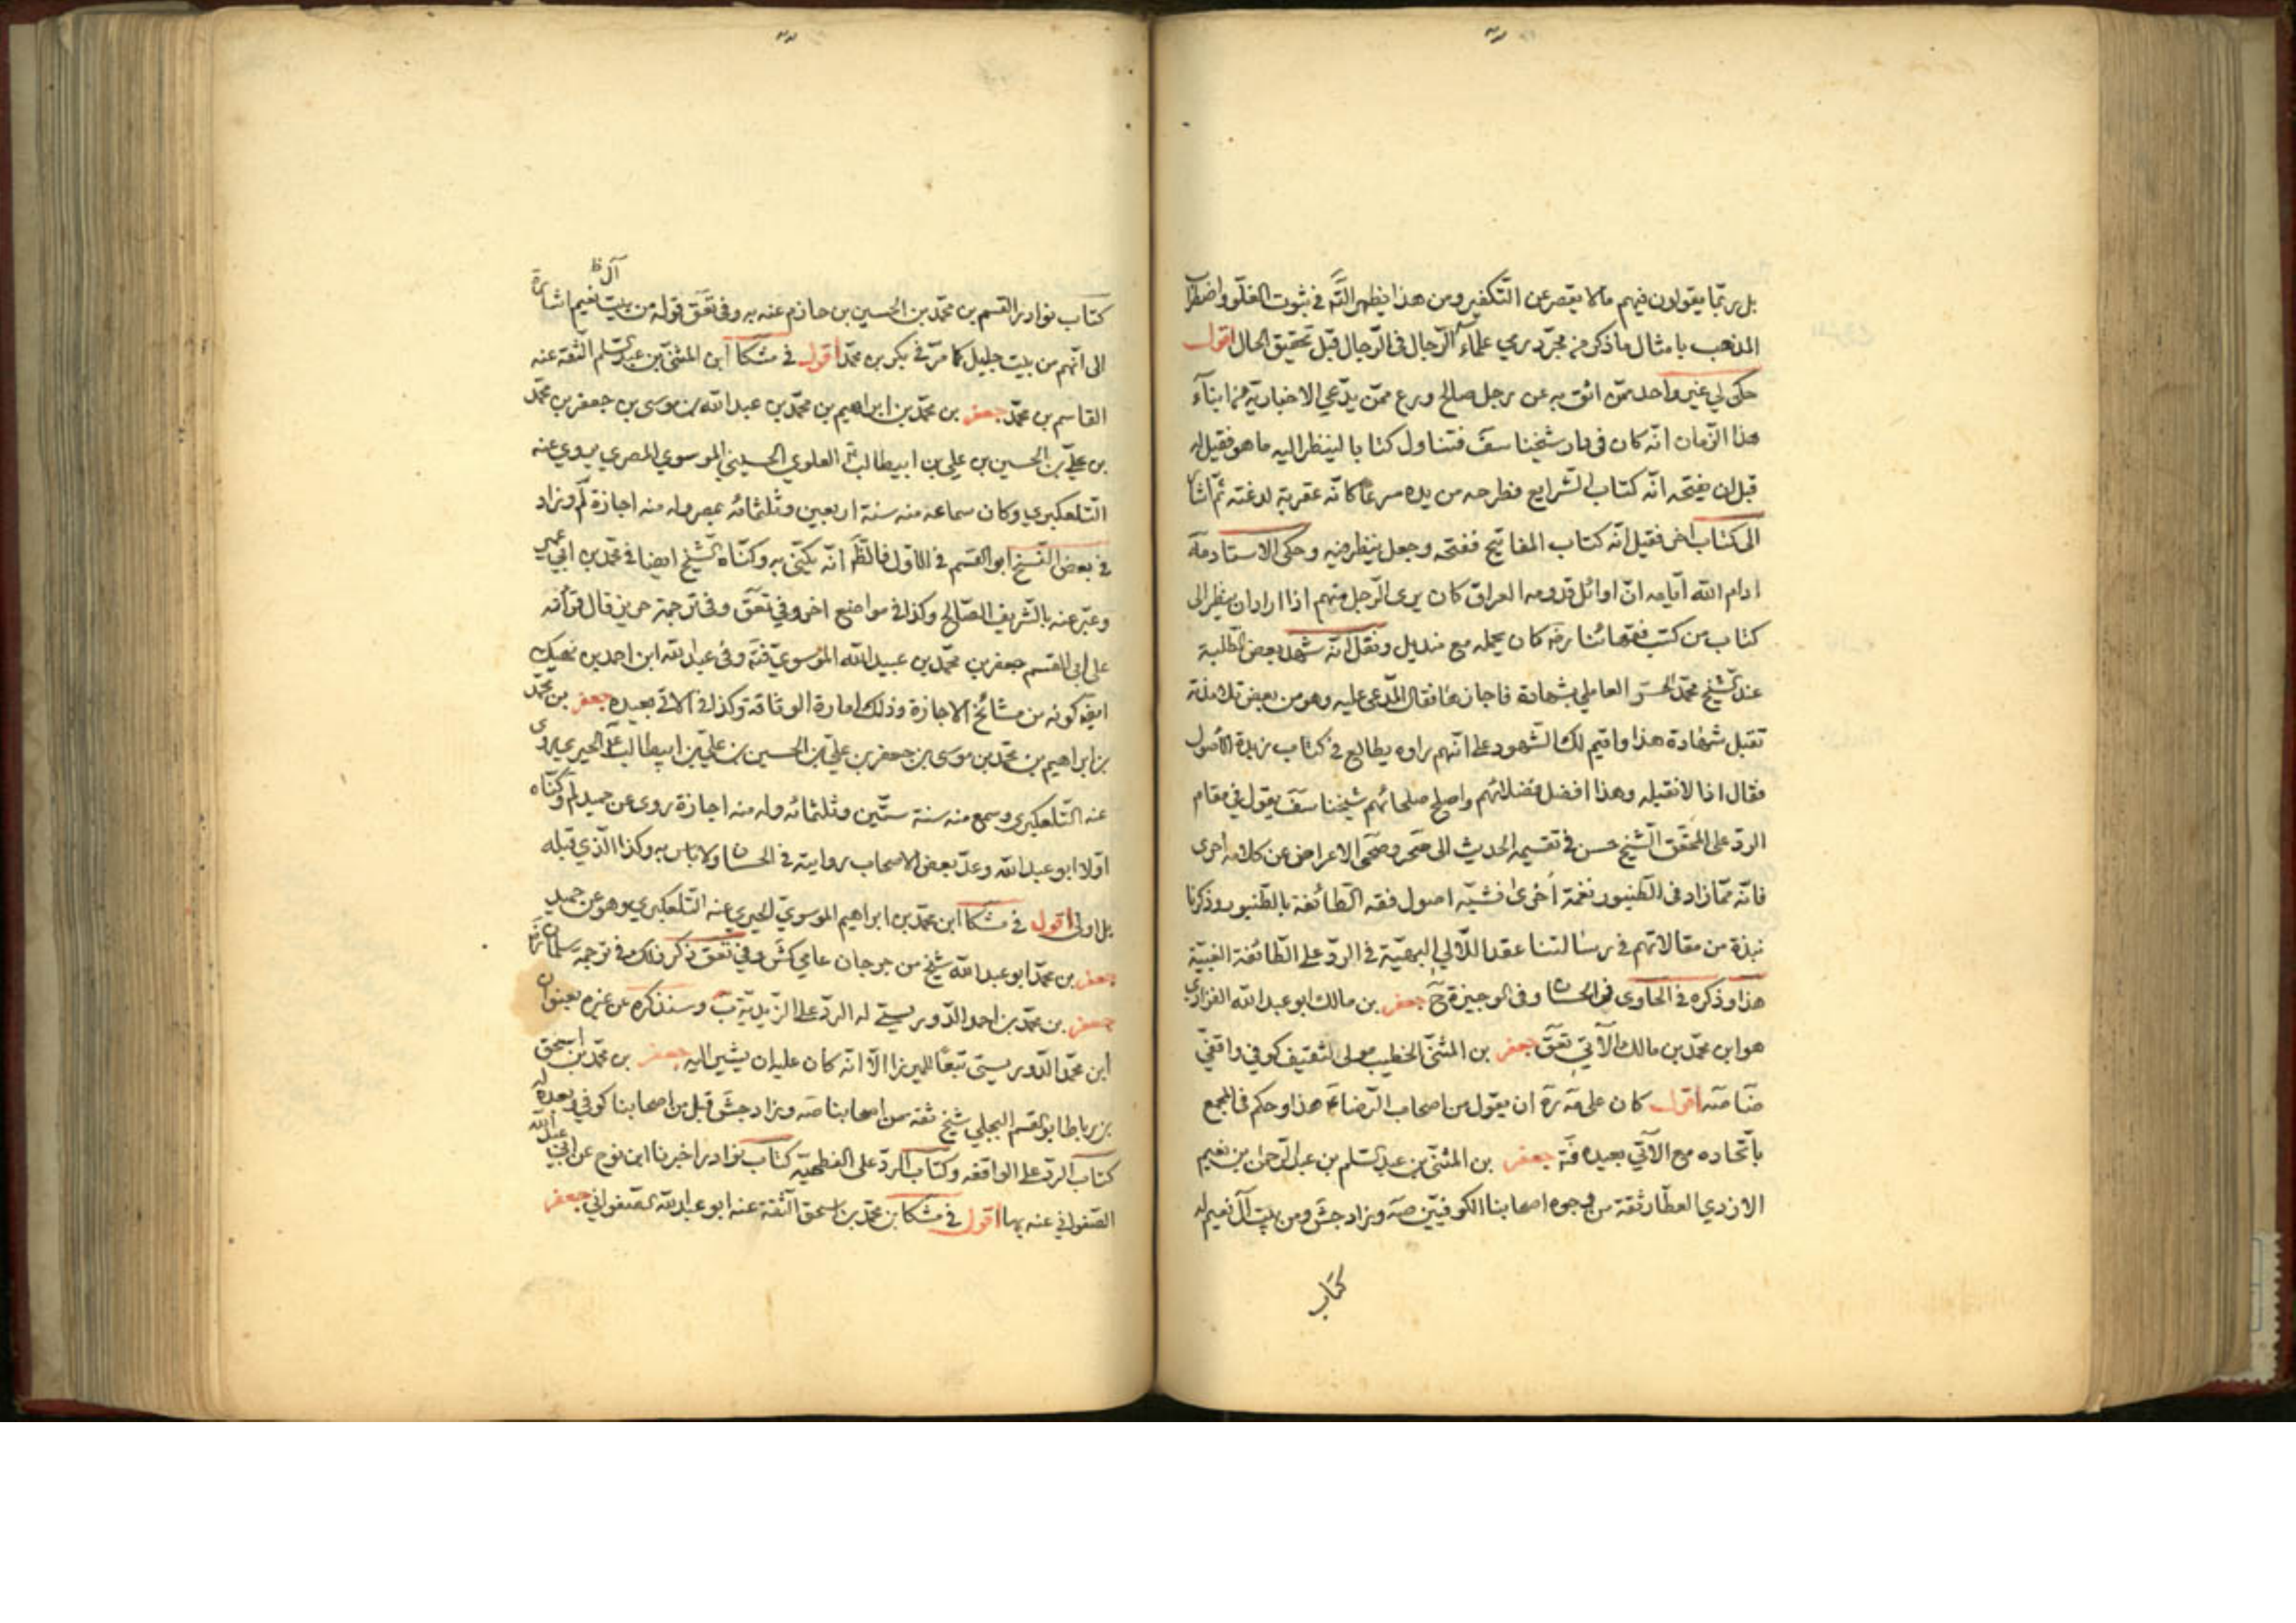 بل ربّما يقولون فيهم مالا يقصر عن التّكفير ومن هذا يظهر التّأمّل في ثبوت الغلوّ واضطراب
المذهب بامثال ما ذكر من مجرّد رمي علماء الرّجال في الرّجال قبل تحقيق الحال اقول
حكى لي غير واحد ممّن اثق به عن رجل صالح ورع ممّن يدّعي الاخباريّة من ابناء
هذا الزّمان انّه كان في دار شيخنا سف فتناول كتابا لينظر اليه ما هو فقيل له
قبل ان يفتحه انّه كتاب الشرايع فطرحه من يده مسرعا كانّه عقربة لدغته ثمّ اشار
الى كتاب اخر فقيل انّه كتاب المفاتيح ففتحه وجعل ينظر فيه وحكى الاستاد مة
ادام الله ايّامه انّ اوائل قدومه العراق كان يرى الرّجل منهم اذا اراد ان ينظر الى
كتاب من كتب فقهائنا رضه كان يحمله مع منديل ونقل انّه شهد بعض الطّلبة
عند الشّيخ محمّد الحرّ العاملي بشهادة فاجازها فقال المدّعى عليه وهو من بعض تلامذته
تقبل شهادة هذا واقيم لك الشّهود على انّهم راوه يطالع في كتاب زبدة الاصول
فقال اذا لا نقبله وهذا افضل فضلائهم واصلح صلحائهم شيخنا سف يقول في مقام
الردّ على المحقّق الشّيخ حسن في تقسيمه الحديث الى صحر وصحى الاعراض عن كلامه احرى
فانّه ممّا زاد في الطّنبور نغمة اخرى فشبّه اصول فقه الطّائفة بالطّنبور وذكرنا
نبذة من مقالاتهم في رسالتنا عقد اللّآلي البهيّة في الردّ على الطّائفة الغبيّة
هذا وذكره في الحاوي في الحسان وفي الوجيزة ح جعفر بن مالك ابو عبد الله الفزاري
هو ابن محمّد بن مالك الآتي تعق جعفر بن المثنّى الخطيب مولى لثقيف كوفي واقفيّ
ضا صه اقول كان على مة ره ان يقول من اصحاب الرّضا ع هذا وحكم في المجمع
باتّحاده مع الآتي بعيده فتّه جعفر بن المثنّى بن عبد السّلم بن عبد الرّحمن بن نعيم
الازدي العطّار ثقة من وجوه اصحابنا الكوفيّين صه وزاد جش ومن بيت آل نعيم له
كتاب
آل ظ
كتاب نوادر القسم بن محمّد بن الحسين بن حازم عنه به وفي تعق قوله من بيت نعيم اشارة
الى انّهم من بيت جليل كما مرّ في بكر بن محمّد اقول في مشكا ابن المثنّى بن عبد السّلم الثّقة عنه
القاسم بن محمّد جعفر بن محمّد بن ابراهيم بن محمّد بن عبد الله بن موسى بن جعفر بن محمّد
بن عليّ بن الحسين بن علي بن ابيطالب العلوي الحسيني الموسوي المصري يروي عنه
التّلعكبري وكان سماعه منه سنة اربعين وثلثمائه بمصر وله منه اجازة لم وزاد
في بعض النّسخ ابو القسم في الاوّل فالظّ انّه يكنّى به وكنّاه الشّيخ ايضا في محمّد بن ابي عمير
وعبّر عنه بالشّريف الصّالح وكذا في مواضع اخر وفي تعق وفي ترجمة حريز قال قرأته
على ابي القسم جعفر بن محمّد بن عبيد الله الموسوي فتّه وفي عبد الله ابن احمد بن نهيك
ايضه كونه من مشائخ الاجازة وذلك امارة الوثاقة وكذا في الآتي بعيده جعفر بن محمّد
بن ابراهيم بن محمّد بن موسى بن جعفر بن عليّ بن الحسين بن عليّ بن ابيطالب ع الحيري يروى
عنه التّلعكبري وسمع منه سنة ستّين وثلثمائه وله منه اجازة روى عن حميد لم وكنّاه
اوّلا ابو عبد الله وعدّ بعض الاصحاب روايته في الحسان ولا باس به وكذا الّذي قبله
بل اولى اقول في مشكا ابن محمّد بن ابراهيم الموسوي الحيري عنه التلعكبري وهو عن حميد
جعفر بن محمّد ابو عبد الله شيخ من جرجان عامي كش وفي تعق ذكر ذلك في ترجمة سلمان ره
جعفر بن محمّد بن احمد الدّوريستي له الردّ على الزّيديّة ب وسنذكره عن غيره بعنوان
ابن محمّد الدّوريستي تبعًا للميرزا الّا انّه كان عليه ان يشير اليه جعفر بن محمّد بن اسحق
بن رباط ابو القسم البجلي شيخ ثقة من اصحابنا صه وزاد جش قبل من اصحابنا كوفي وبعده له
كتاب الردّ على الواقفه وكتاب الردّ على الفطحيّه كتاب نوادر اخبرنا ابن نوح عن ابي عبد الله
الصّفواني عنه بها اقول في مشكا بن محمّد بن اسحق الثّقة عنه ابو عبد الله الصّفواني جعفر